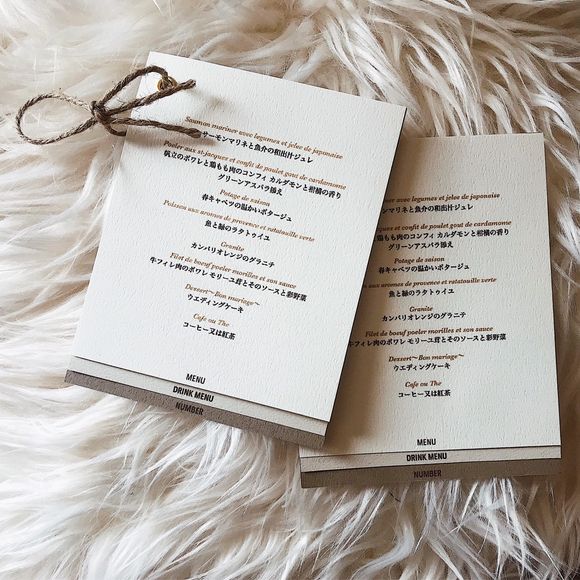 Saumon mariner avec legumes et jelee de japonaise
サーモンマリネと魚介の和出汁ジュレ
Poeler aux st-jacques et confit de poulet gout de cardamome
帆立のポワレと鶏もも肉のコンフィ カルダモンと柑橘の香り
グリーンアスパラ添え
Potage de saison
春キャベツの温かいポタージュ
Poisson aux aromes de provence et ratatouille verte
魚と緑のラタトゥイユ
Granite
カンパリオレンジのグラニテ
Filet de boeuf poeler morilles et son sauce
牛フィレ肉のポワレ モリーユ茸とそのソースと彩野菜
Dessert〜Bon mariage〜
ウエディングケーキ
Cafe ou The
コーヒー又は紅茶
MENU
DRINK MENU
NUMBER
avec legumes et jelee de japonaise
ンマリネと魚介の和出汁ジュレ
et confit de poulet gout de cardamome
鶏もも肉のコンフィ カルダモンと柑橘の香り
グリーンアスパラ添え
Potage de saison
春キャベツの温かいポタージュ
de provence et ratatouille verte
魚と緑のラタトゥイユ
Granite
カンパリオレンジのグラニテ
Filet de boeuf poeler morilles et son sauce
フィレ肉のポワレ モリーユ茸とそのソースと彩野菜
Dessert〜Bon mariage〜
ウエディングケーキ
Cafe ou The
コーヒー又は紅茶
MENU
DRINK MENU
NUMBER